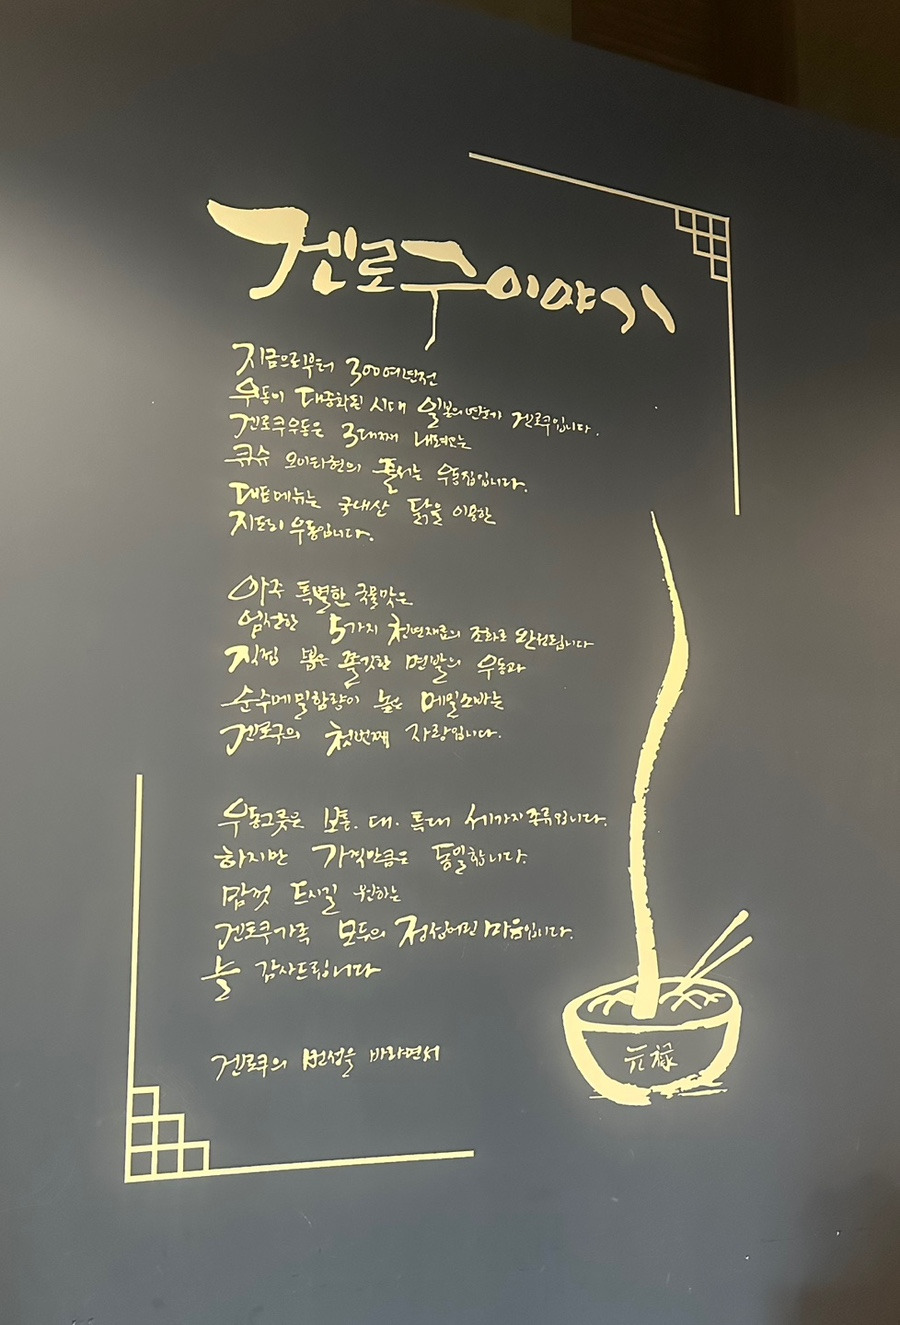 겐로쿠이야기
지금으로부터 300여년전
우동이 대중화된 시대 일본의 연호가 겐로쿠입니다.
겐로쿠우동은 3대째 내려오는
큐슈 오이타현의 줄서는 우동집입니다.
대표메뉴는 국내산 닭을 이용한
지도리 우동입니다.
아주 특별한 국물맛은
엄선한 5가지 천연재료의 조화로 완성됩니다
직접 뽑은 쫄깃한 면발의 우동과
순수메밀함량이 높은 메밀소바는
겐로쿠의 첫번째 자랑입니다.
우동그릇은 보통. 대. 특대 세가지 종류입니다.
하지만 가격만큼은 동일합니다.
맘껏 드시길 원하는
겐로쿠가족 모두의 정성어린 마음입니다.
늘 감사드립니다
겐로쿠의 번성을 바라면서
元禄